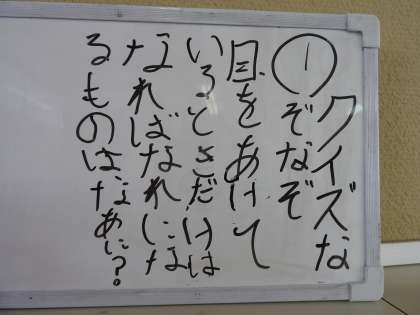 ①クイズな
ぞなぞ
目をあけて
いるときだけは
なればなれにな
るものはなあに?